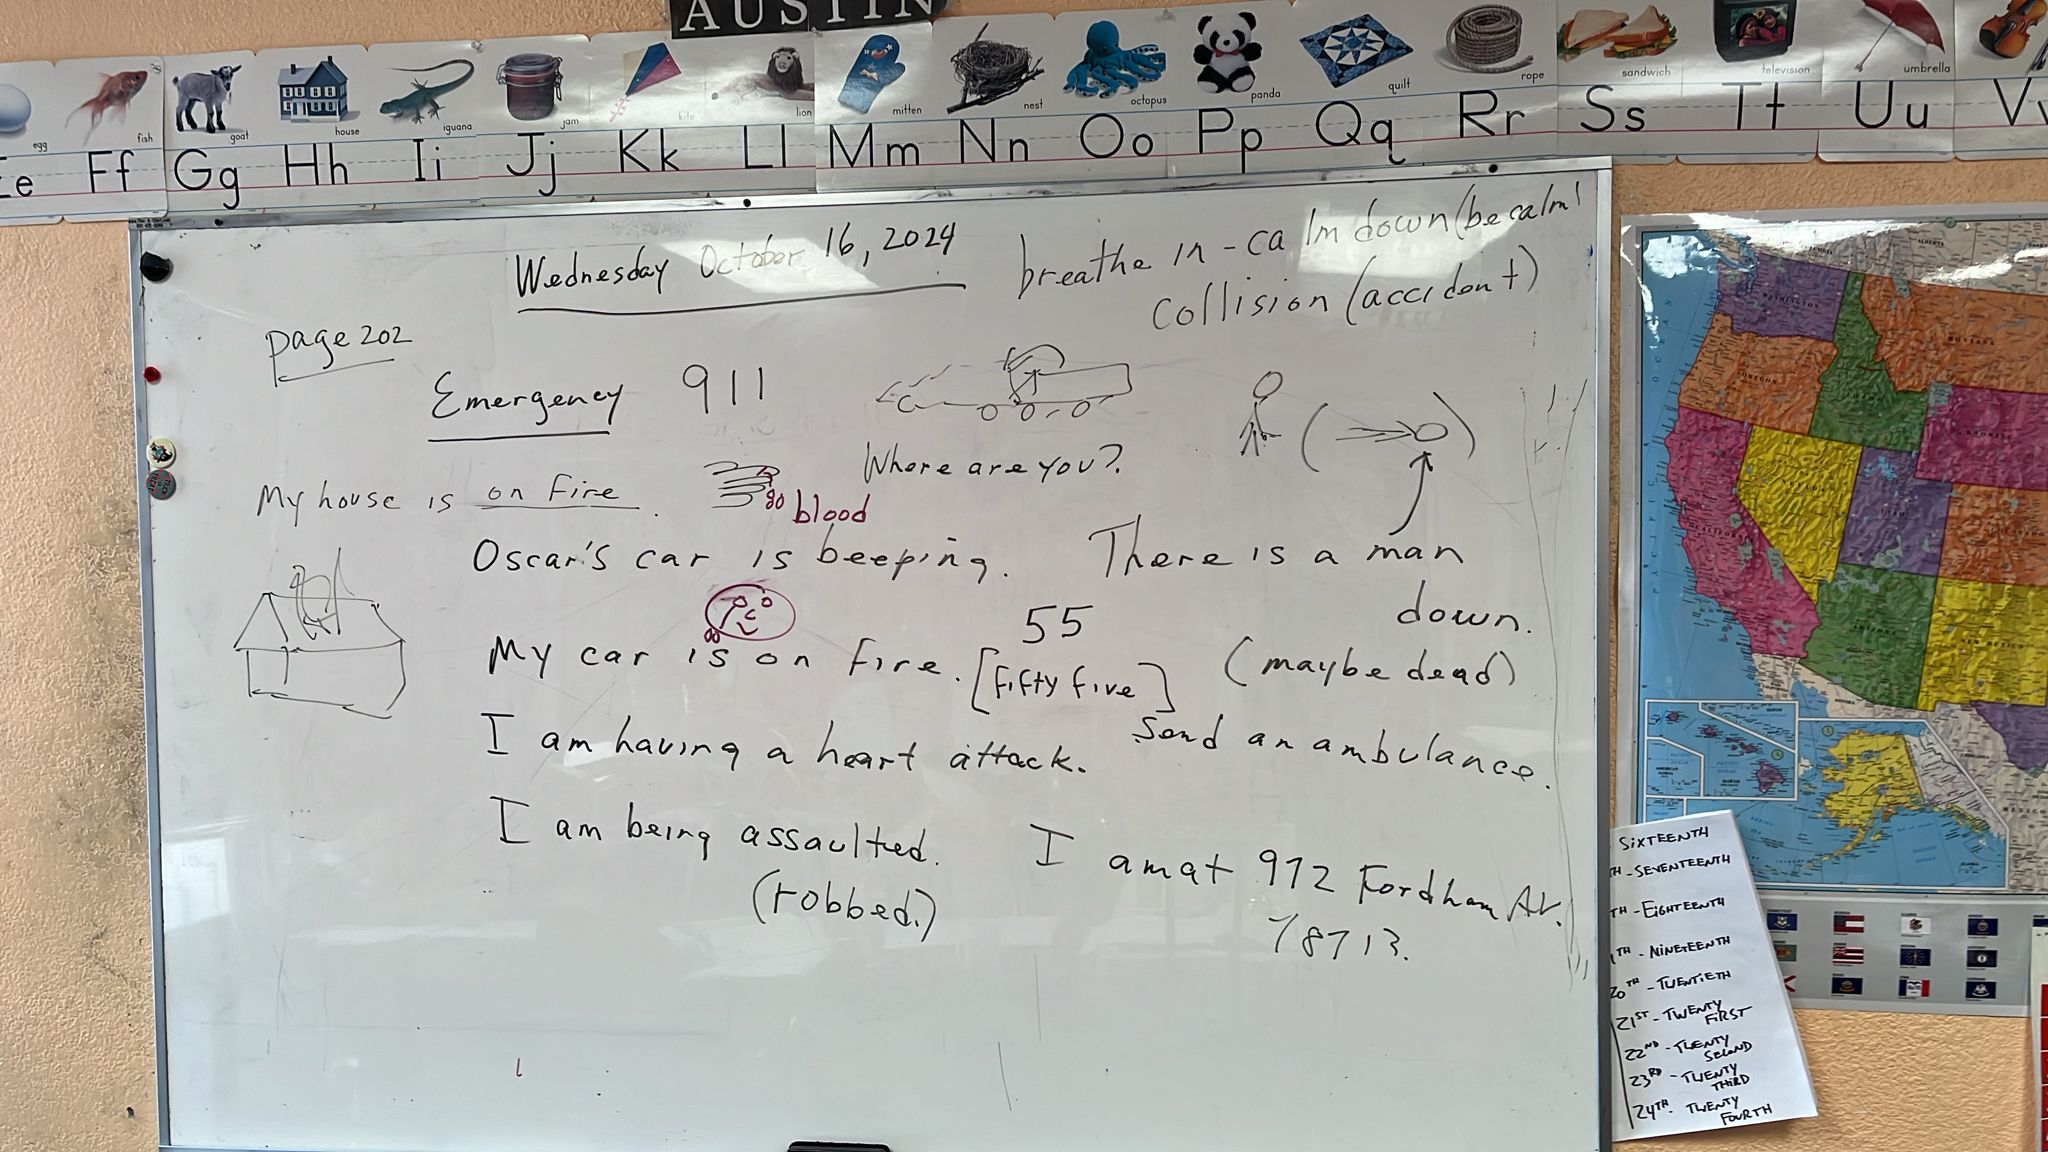 AUSTIN
egg
fish
goat
house
iguana
jam
kite
lion
mitten
nest
octopus
panda
quilt
rope
sandwich
television
umbrella
Ee Ff Gg Hh Ii Jj Kk Ll Mm Nn Oo Pp Qq Rr Ss Tt Uu Vv
Wednesday October 16, 2024
breathe in - calm down (be calm)
collision (accident)
page 202
Emergency 911
Where are you?
My house is on fire.
blood
Oscar's car is beeping.
There is a man
down.
(maybe dead)
55
My car is on fire. [fifty five]
I am having a heart attack.
Send an ambulance.
I am being assaulted.
(robbed.)
I am at 972 Fordham Av.
78713.
SIXTEENTH
TH - SEVENTEENTH
TH - EIGHTEENTH
TH - NINETEENTH
20TH - TWENTIETH
21ST - TWENTY
FIRST
22ND - TWENTY
SECOND
23RD - TWENTY
THIRD
24TH - TWENTY
FOURTH
WASHINGTON
MONTANA
OREGON
IDAHO
WYOMING
NEVADA
UTAH
CALIFORNIA
ARIZONA
NEW MEXICO